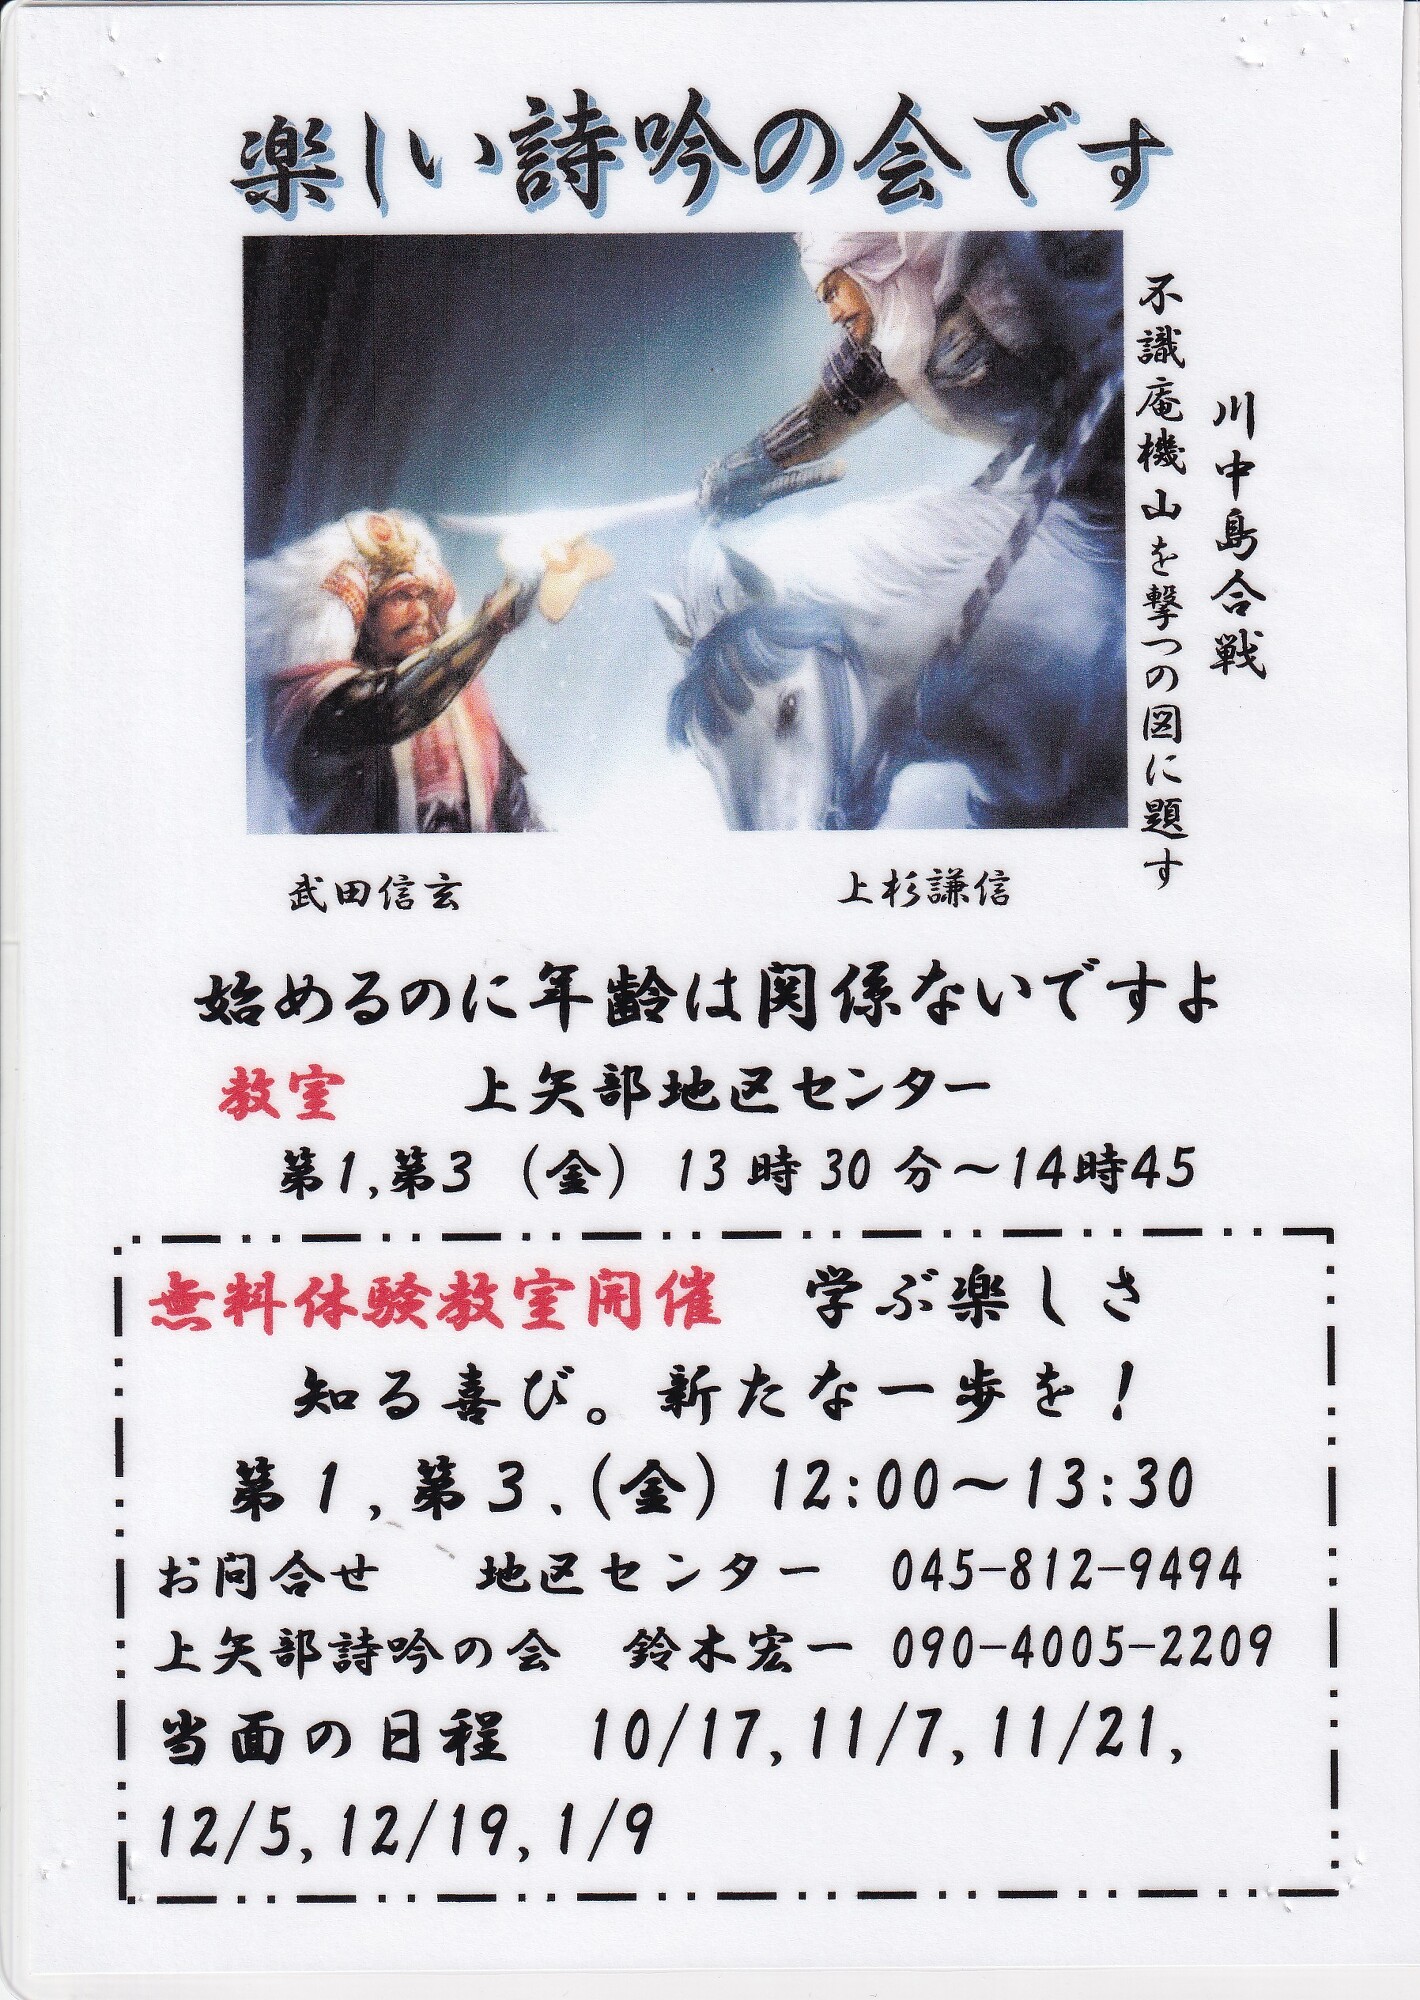 楽しい詩吟の会です
川中島合戦
不識庵機山を撃つの図に題す
武田信玄 上杉謙信
始めるのに年齢は関係ないですよ
教室 上矢部地区センター
第1,第3 (金) 13時30分～14時45
無料体験教室開催 学ぶ楽しさ
知る喜び。新たな一歩を！
第1,第3、(金) 12:00～13:30
お問合せ 地区センター 045-812-9494
上矢部詩吟の会 鈴木宏一 090-4005-2209
当面の日程 10/17,11/7,11/21,
12/5,12/19,1/9